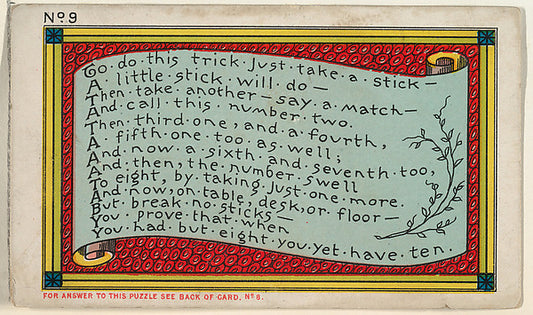 No. 9
To·do·this trick·just·take·a·stick—
A·little·stick·will·do—
Then·take·another—say·a·match—
And·call·this·number·two.
Then·third·one, and·a·fourth,
A·fifth·one·too·as·well;
And·now·a·sixth·and·seventh·too,
And·then, the·number·swell
To·eight, by·taking·just·one·more.
And·now, on·table, desk, or·floor—
But·break·no·sticks—
You·prove·that·when
You·had·but·eight·you·yet·have·ten.
FOR ANSWER TO THIS PUZZLE SEE BACK OF CARD, No. 8.